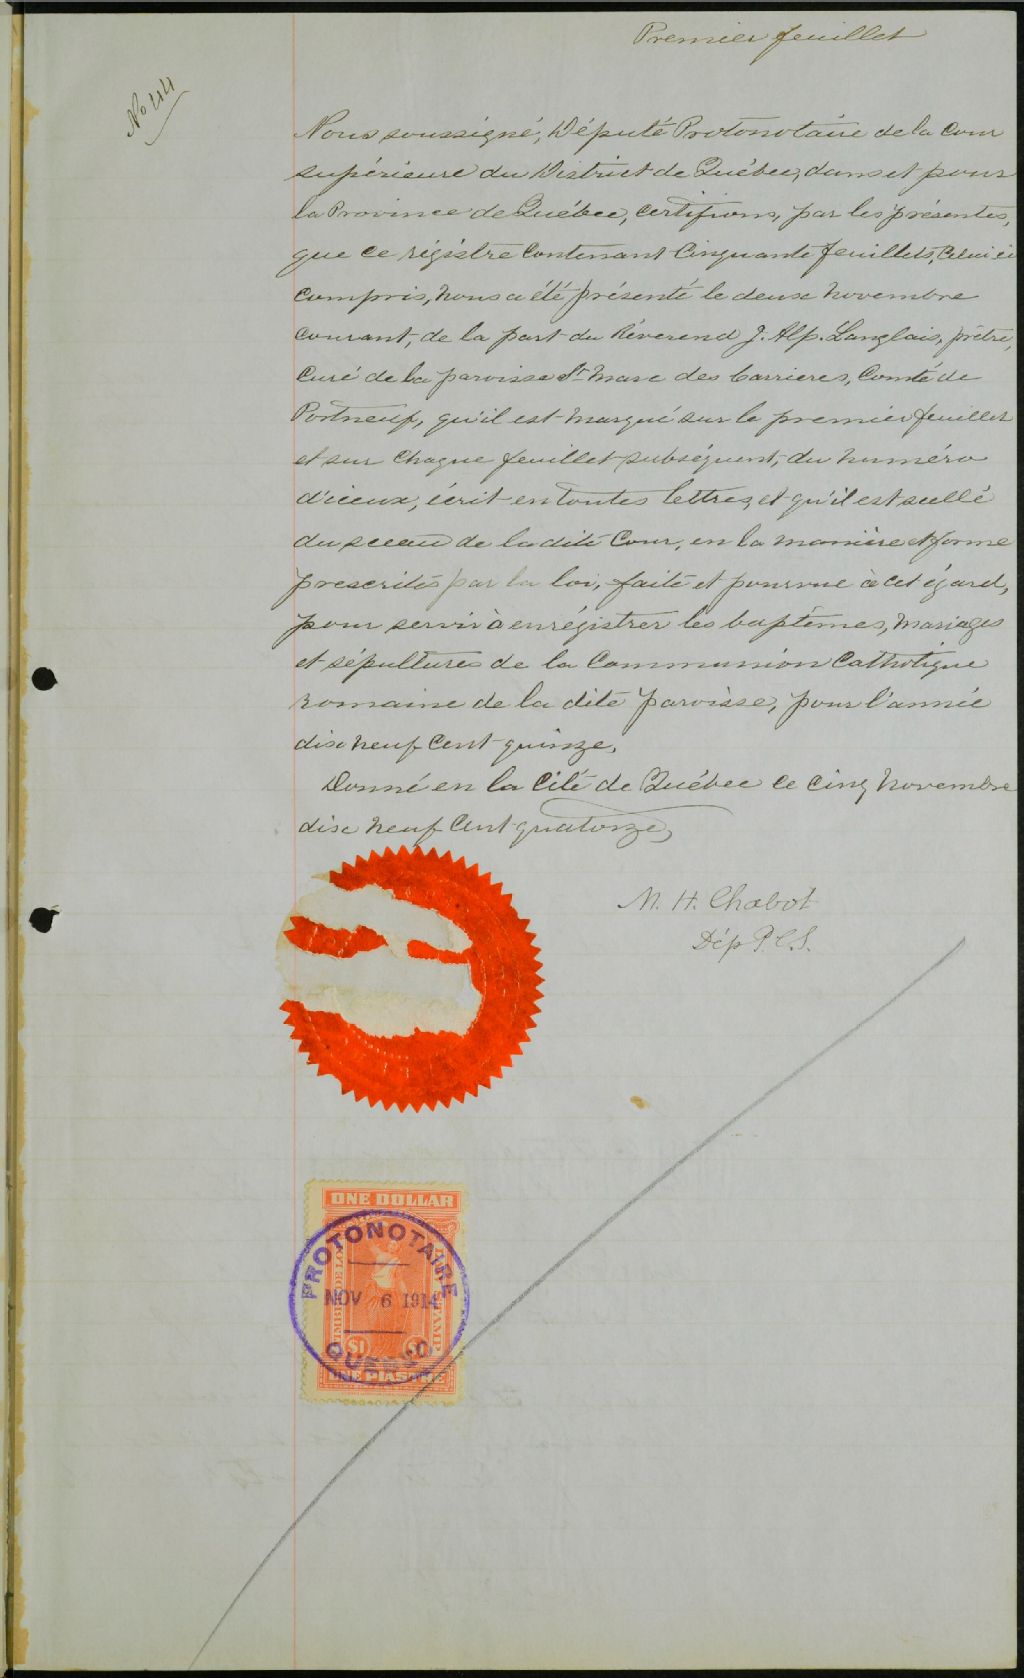 Premier feuillet
No 44
Nous soussigné, Député Protonotaire de la Cour
supérieure du District de Québec, dans et pour
la Province de Québec, certifions, par les présentes,
que ce régistre contenant Cinquante feuillets, Celui ci
compris, nous a été présenté le deux novembre
courant, de la part du Réverend J. Alp. Langlais, prêtre,
Curé de la paroisse St Marc des Carrieres, Comté de
Portneuf, qu'il est marqué sur le premier feuillet
et sur chaque feuillet subséquent, du numéro
d'iceux, écrit en toutes lettres, et qu'il est scellé
du sceau de la dite Cour, en la manière et forme
prescrites par la loi, faite et pourvue à cet égard,
pour servir à enrégistrer les baptêmes, mariages
et sépultures de la Communion Catholique
romaine de la dite paroisse, pour l'année
dix neuf cent quinze.
Donné en la Cité de Québec ce cinq novembre
dix neuf cent quatorze,
M. H. Chabot
Dép P.C.S.
ONE DOLLAR
PROTONOTAIRE
NOV 6 1914
QUEBEC
$1 $1
ONE PIASTRE